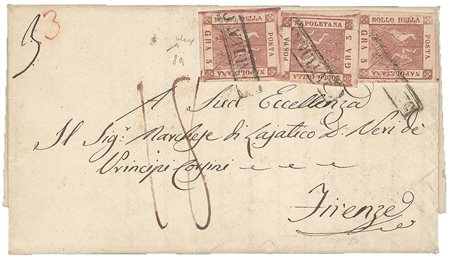 3 3
8a
BOLLO DELLA POSTA NAPOLETANA GRA 5
BOLLO DELLA POSTA NAPOLETANA GRA 5
BOLLO DELLA POSTA NAPOLETANA GRA 5
A Sua Eccellenza
Il Sig.r Marchese di Lajatico D. Neri de
Principi Corsini
18
Firenze